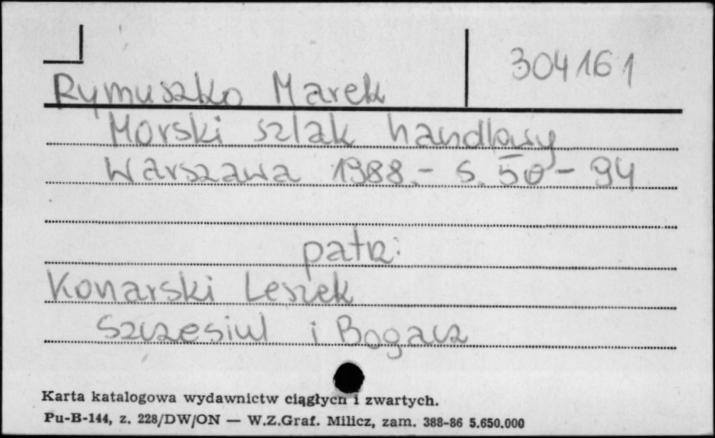 304161
Rymuszko Marek
Morski szlak handlowy
Warszawa 1988.- s. 50-94
patrz:
Konarski Leszek
Szczesiul i Bogacz
Karta katalogowa wydawnictw ciągłych i zwartych.
Pu-B-144, z. 228/DW/ON — W.Z.Graf. Milicz, zam. 388-86 5.650.000